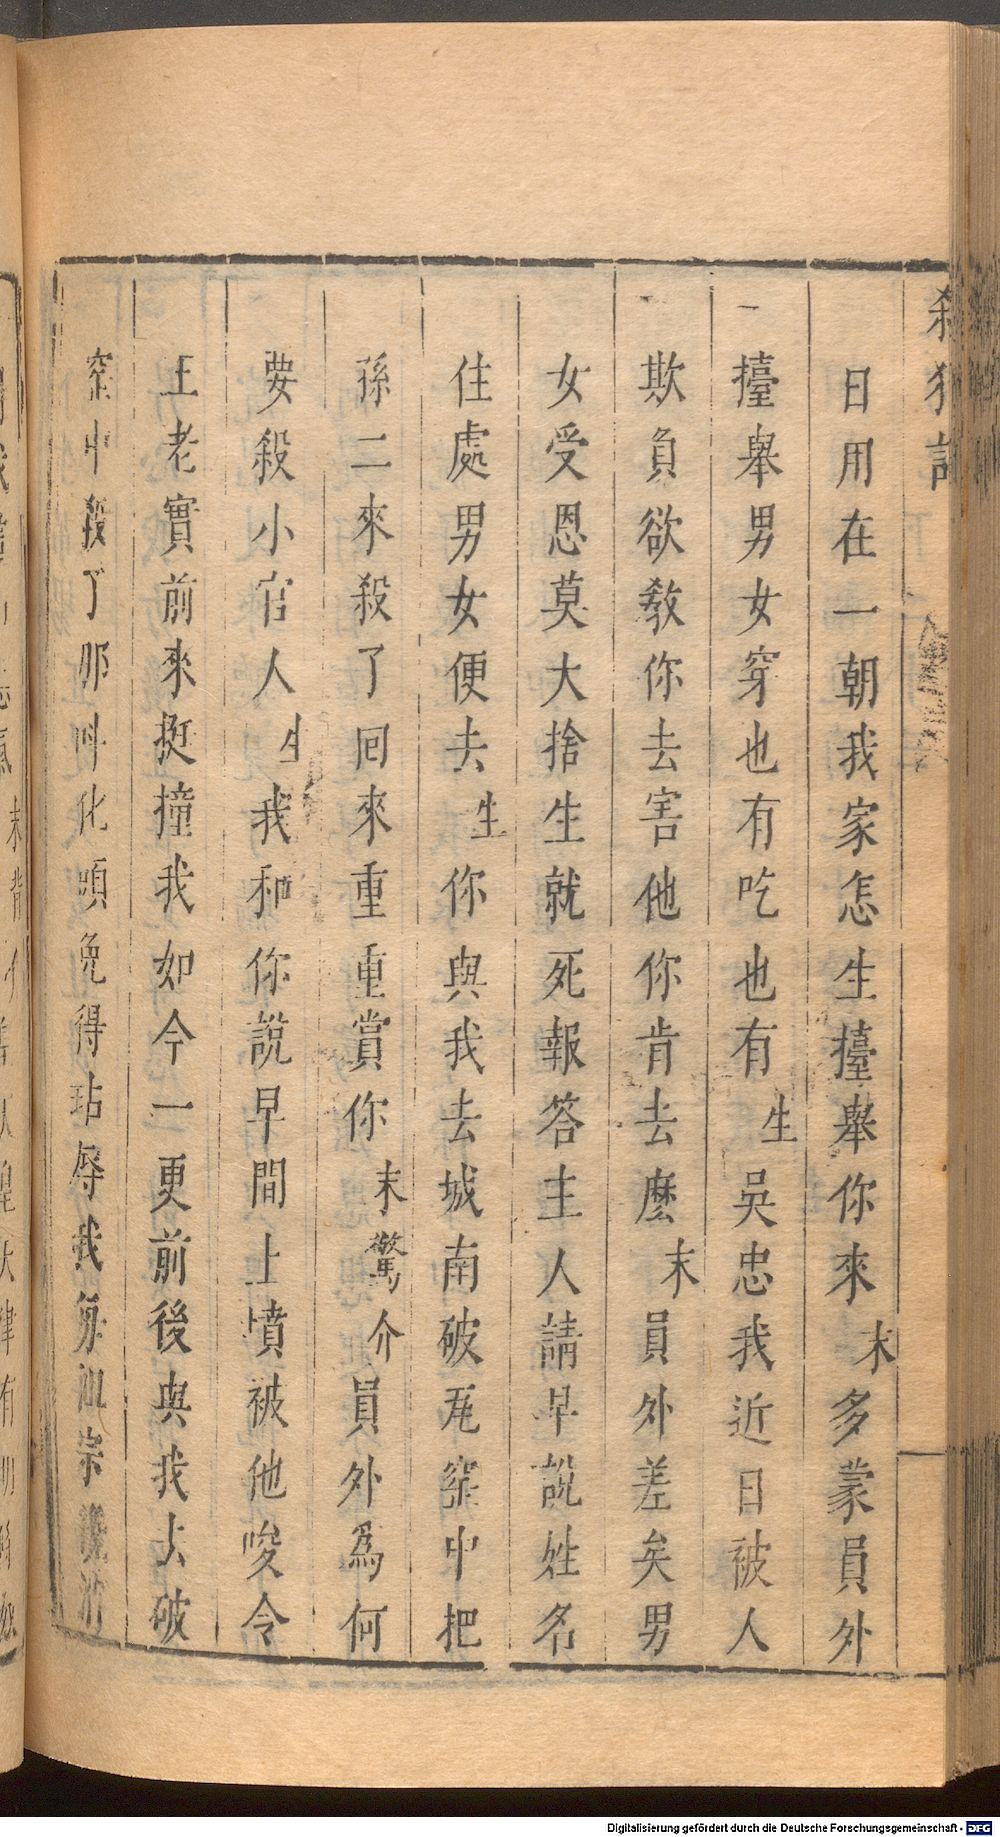 殺狗記
日用在一朝我家怎生擡舉你來末多蒙員外
擡舉男女穿也有吃也有生吳忠我近日被人
欺負欲教你去害他你肯去麼末員外差矣男
女受恩莫大捨生就死報答主人請早說姓名
住處男女便去生你與我去城南破瓦窑中把
孫二來殺了回來重重賞你末驚介員外爲何
要殺小官人生我和你說早間上墳被他唆令
王老實前來挺撞我如今一更前後與我去破
窑中殺了那叫化頭免得玷辱我
Digitalisierung gefördert durch die Deutsche Forschungsgemeinschaft - DFG